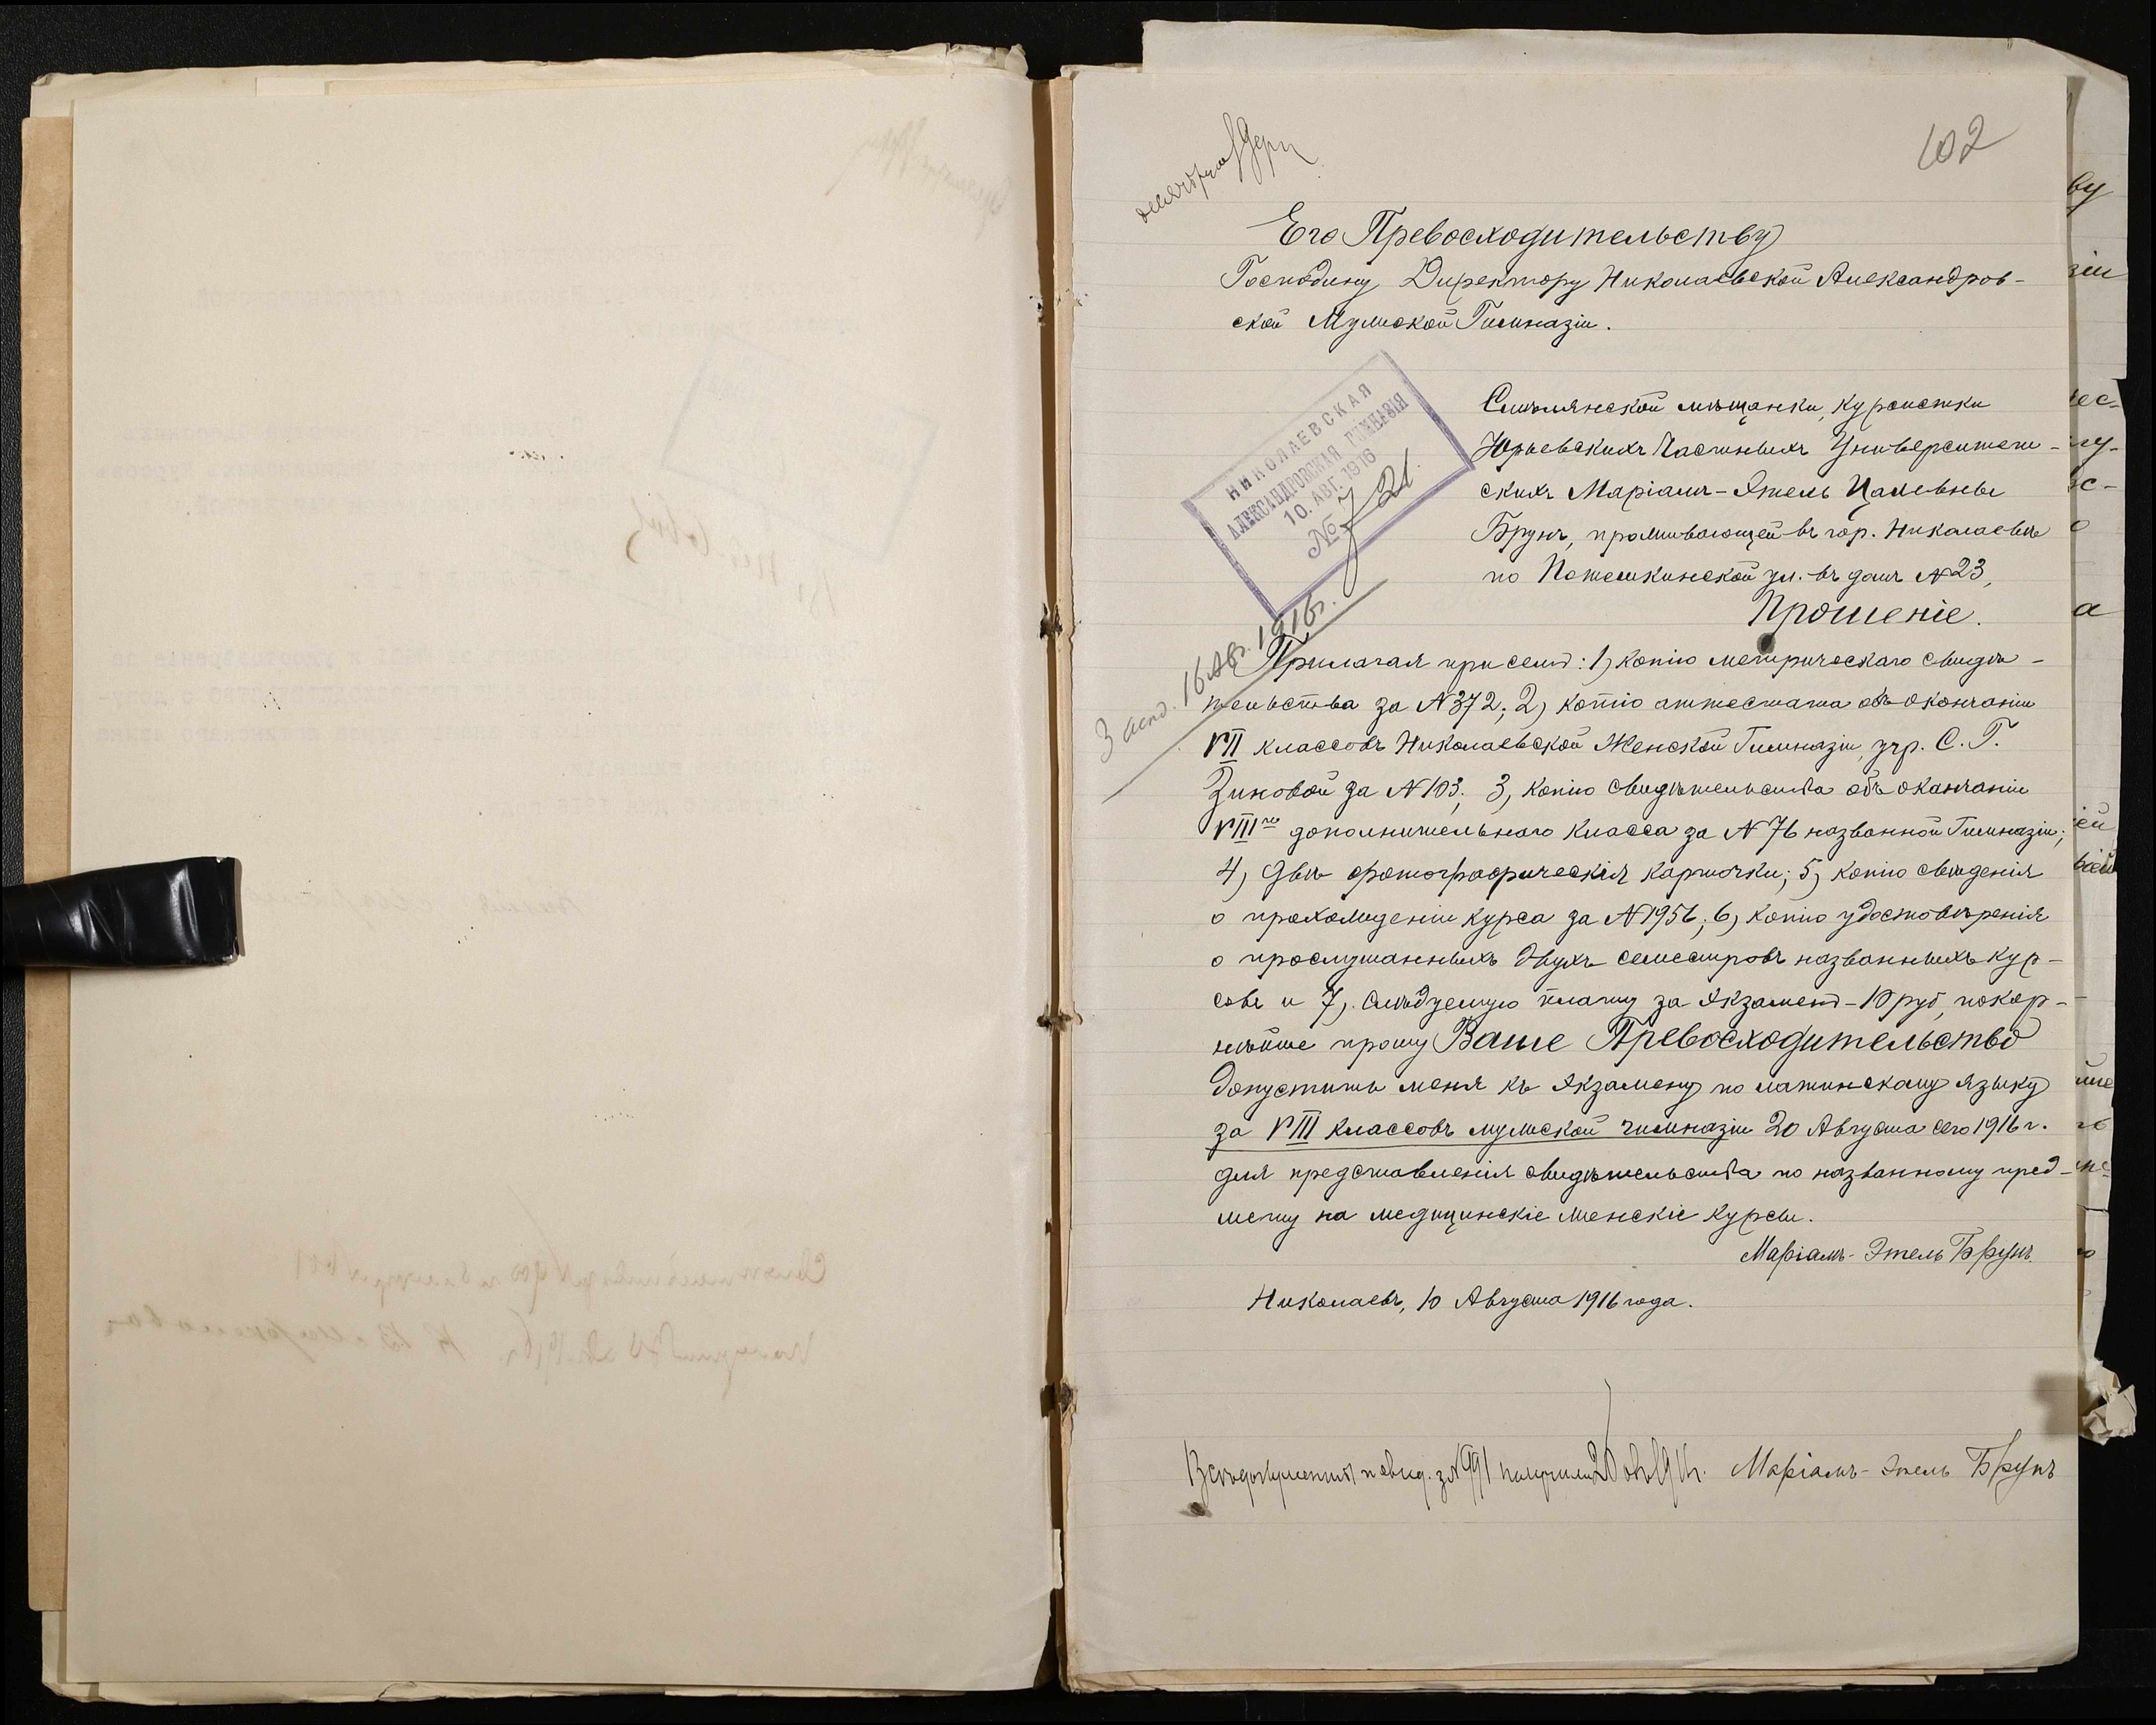 102
Его Превосходительству
Господину Директору Николаевской Александров-
ской Мужской Гимназіи.
НИКОЛАЕВСКАЯ
АЛЕКСАНДРОВСКАЯ ГИМНАЗІЯ
10. АВГ. 1916
№ 721
Смѣлянской мѣщанки, курсистки
Юрьевскихъ Частныхъ Университет-
скихъ Маріамъ-Этель Цалевны
Брунъ, проживающей въ гор. Николаевѣ
по Потемкинской ул. въ домѣ № 23,
Прошеніе.
16 Авг. 1916г.
Прилагая при семъ: 1) копію метрическаго свидѣ-
тельства за № 372; 2) копію аттестата объ окончаніи
VII классовъ Николаевской Женской Гимназіи, учр. С. Г.
Зиновой за № 103; 3) копію свидѣтельства объ окончаніи
VIII го дополнительнаго класса за № 76 названной Гимназіи;
4) двѣ фотографическія карточки; 5) копію свѣденія
о прохожденіи курса за № 1956; 6) копію удостовѣренія
о прослушанныхъ двухъ семестровъ названныхъ кур-
совъ и 7). слѣдуемую плату за экзаменъ - 10 руб, покор-
нѣйше прошу Ваше Превосходительство
допустить меня къ экзамену по латинскому языку
за VIII классовъ мужской гимназіи 20 Августа сего 1916 г.
для представленія свидѣтельства по названному пред-
мету на медицинскіе женскіе курсы.
Маріамъ-Этель Брунъ.
Николаевъ, 10 Августа 1916 года.
Всѣ документы и свид. за № 991 получила 20 авг. 1916г. Маріамъ-Этель Брунъ